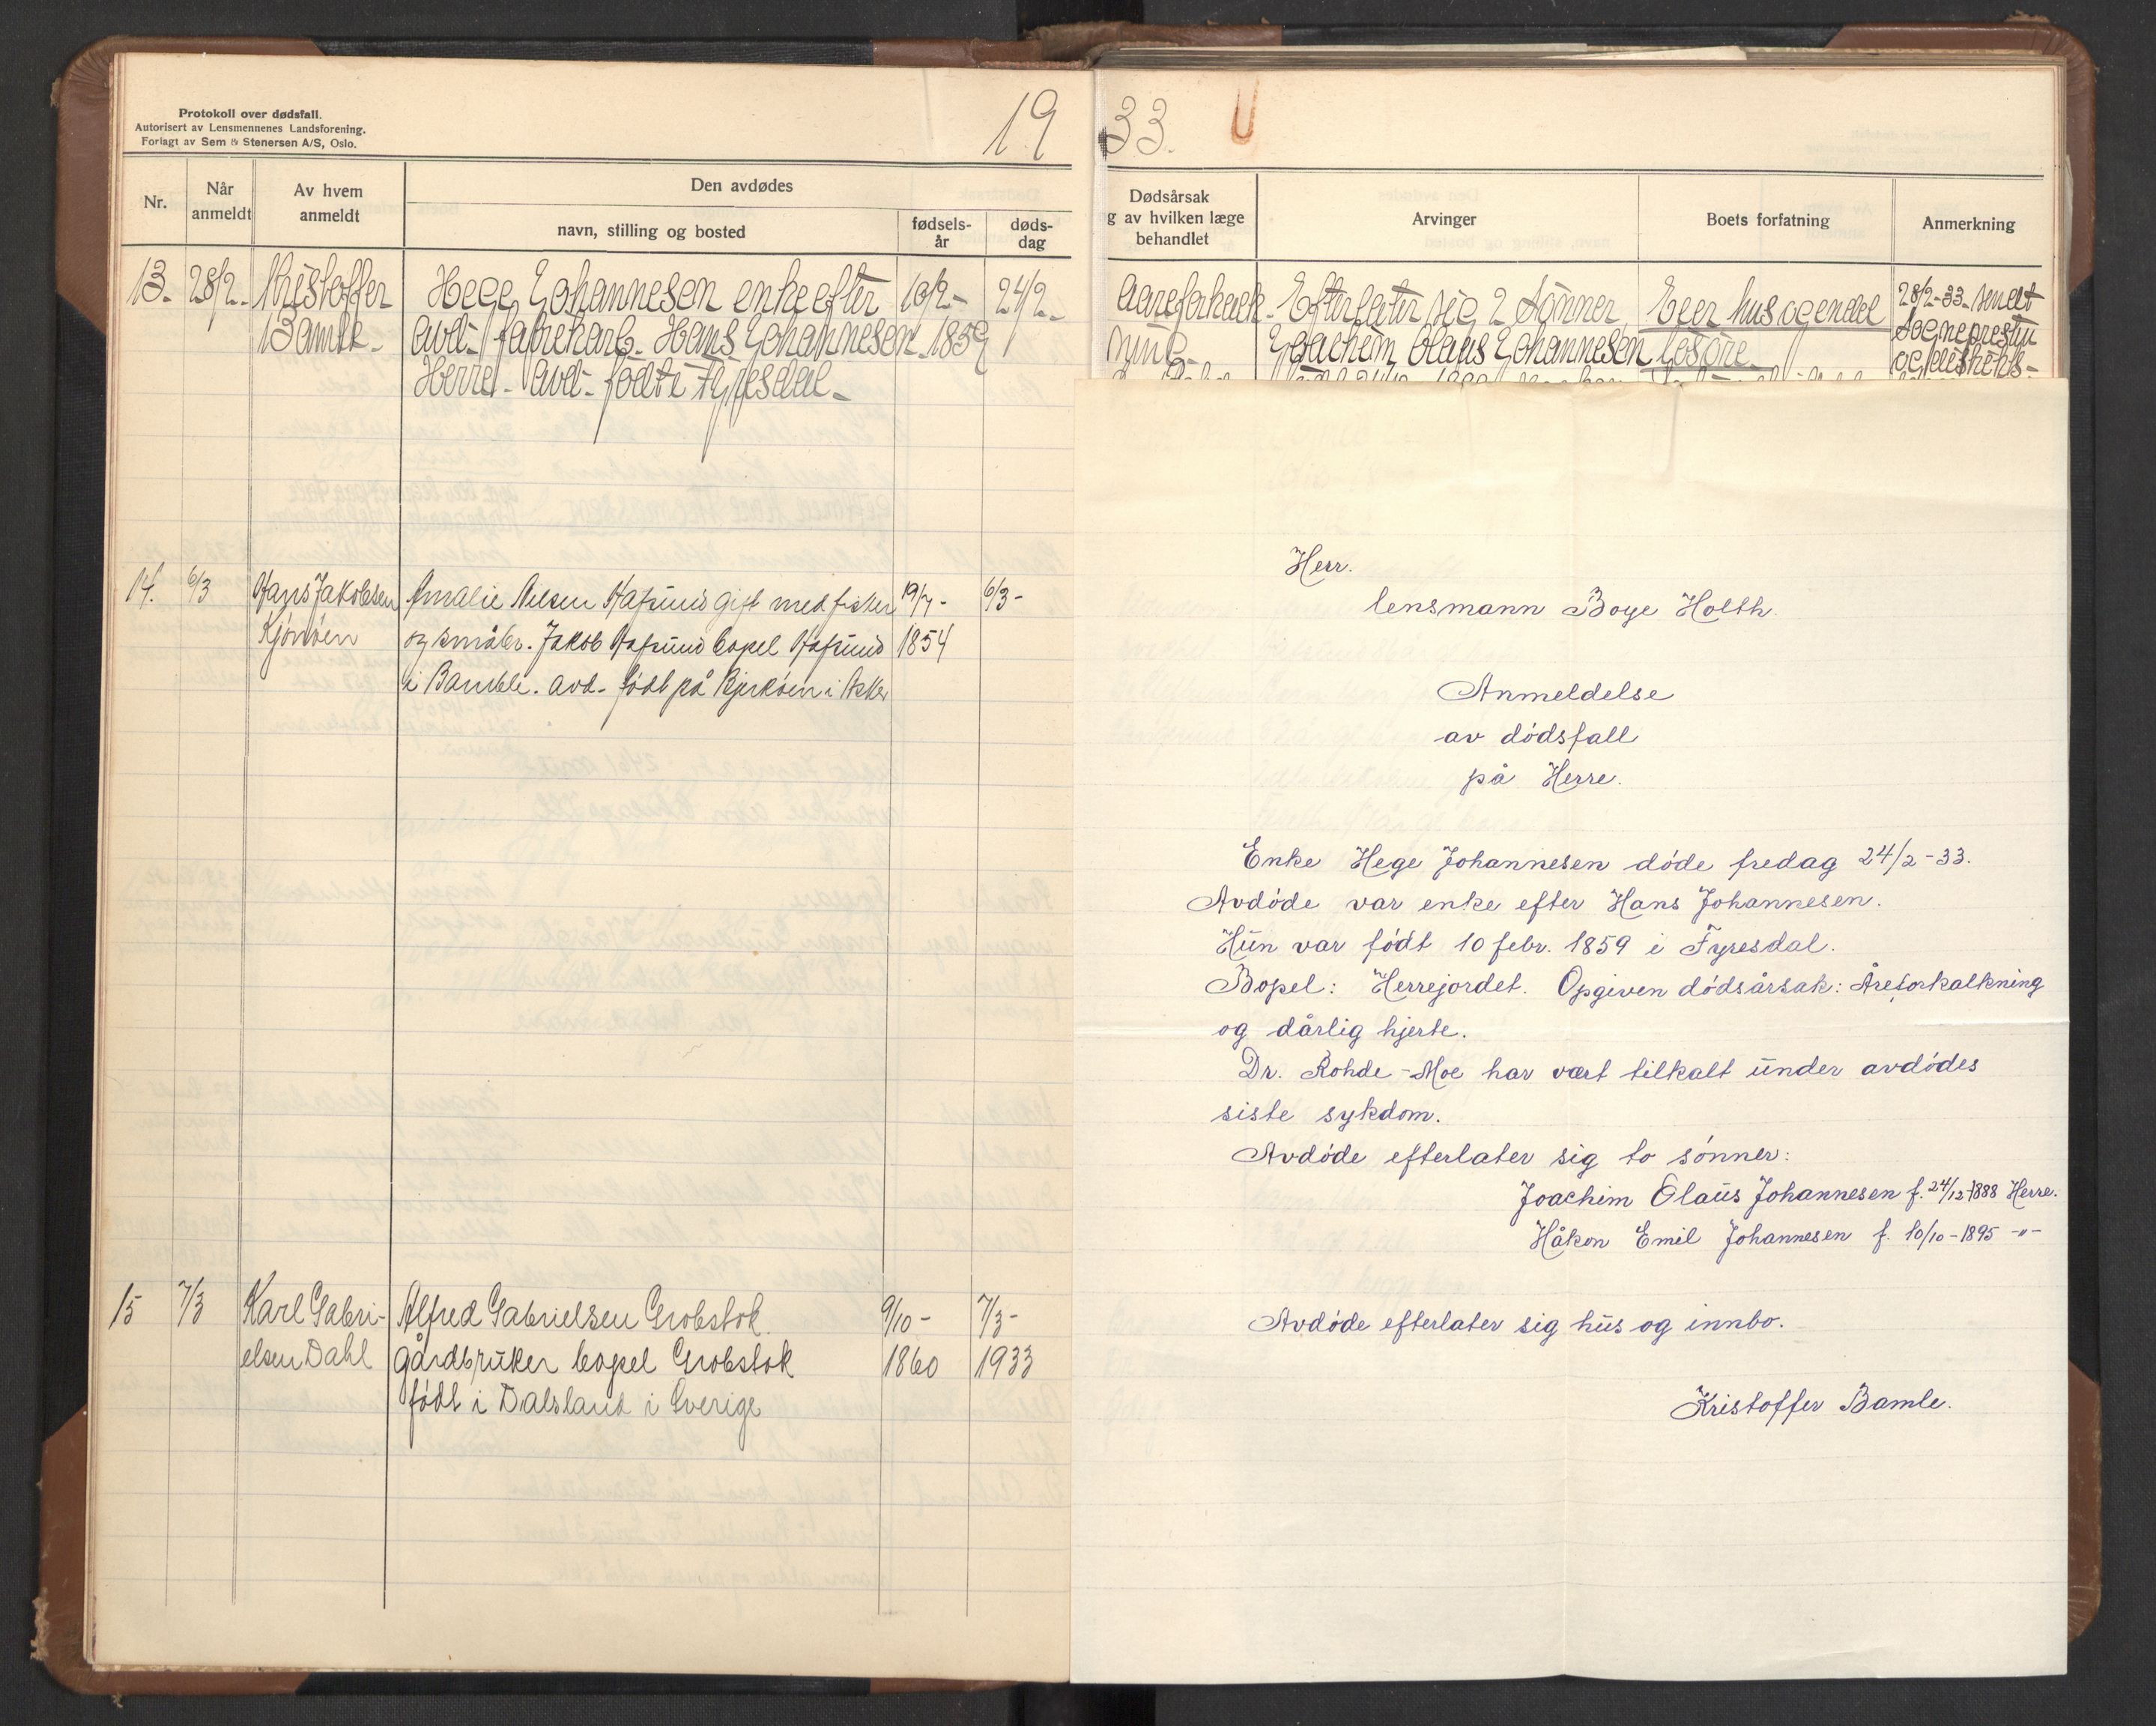 Protokoll over dødsfall.
Autorisert av Lensmennenes Landsforening.
Forlagt av Sem & Stenersen A/S, Oslo.
19
33.
Nr.
Når anmeldt
Av hvem anmeldt
Den avdødes
navn, stilling og bosted
fødsels-år
døds-dag
Dødsårsak
g av hvilken læge
behandlet
Arvinger
Boets forfatning
Anmerkning
13. 28/2. Kristoffer Hege Johannesen enke efter 10/2- 24/2-
Bamle- avd- fabrikarb. Hans Johannesen 1859
Herre. avd- født i Fyresdal-
Aareforkalk- Efterlater sig 2 sønner Eier hus og endel 28/2-33 meldt
ning- Joachim Olaus Johannesen løsøre sogneprestn
14. 6/3 Hans Jakobsen Amalie Nilsen Hafsund gift med fisker 19/7- 6/3-
Kjønøen og småbr. Jakob Hafsund bopel Hafsund 1854
i Bamble. avd- født på Bjerkøen i Asker
15 7/3 Karl Gabri- Alfred Gabrielsen Grobstok 9/10- 7/3-
elsen Dahl gårdbruker bopel Grobstok 1860 1933
født i Dalsland i Sverige
Herr.
lensmann Boye Holth.
Anmeldelse
av dødsfall
på Herre.
Enke Hege Johannesen døde fredag 24/2-33.
Avdøde var enke efter Hans Johannesen.
Hun var født 10 febr. 1859 i Fyresdal.
Bopel: Herrejordet. Opgiven dødsårsak: Åreforkalkning
og dårlig hjerte.
Dr. Rohde-Moe har vært tilkalt under avdødes
siste sykdom.
Avdøde efterlater sig to sønner:
Joachim Olaus Johannesen f. 24/12-1888 Herre.
Håkon Emil Johannesen f. 10/10-1895 -"-
Avdøde efterlater sig hus og innbo.
Kristoffer Bamle.